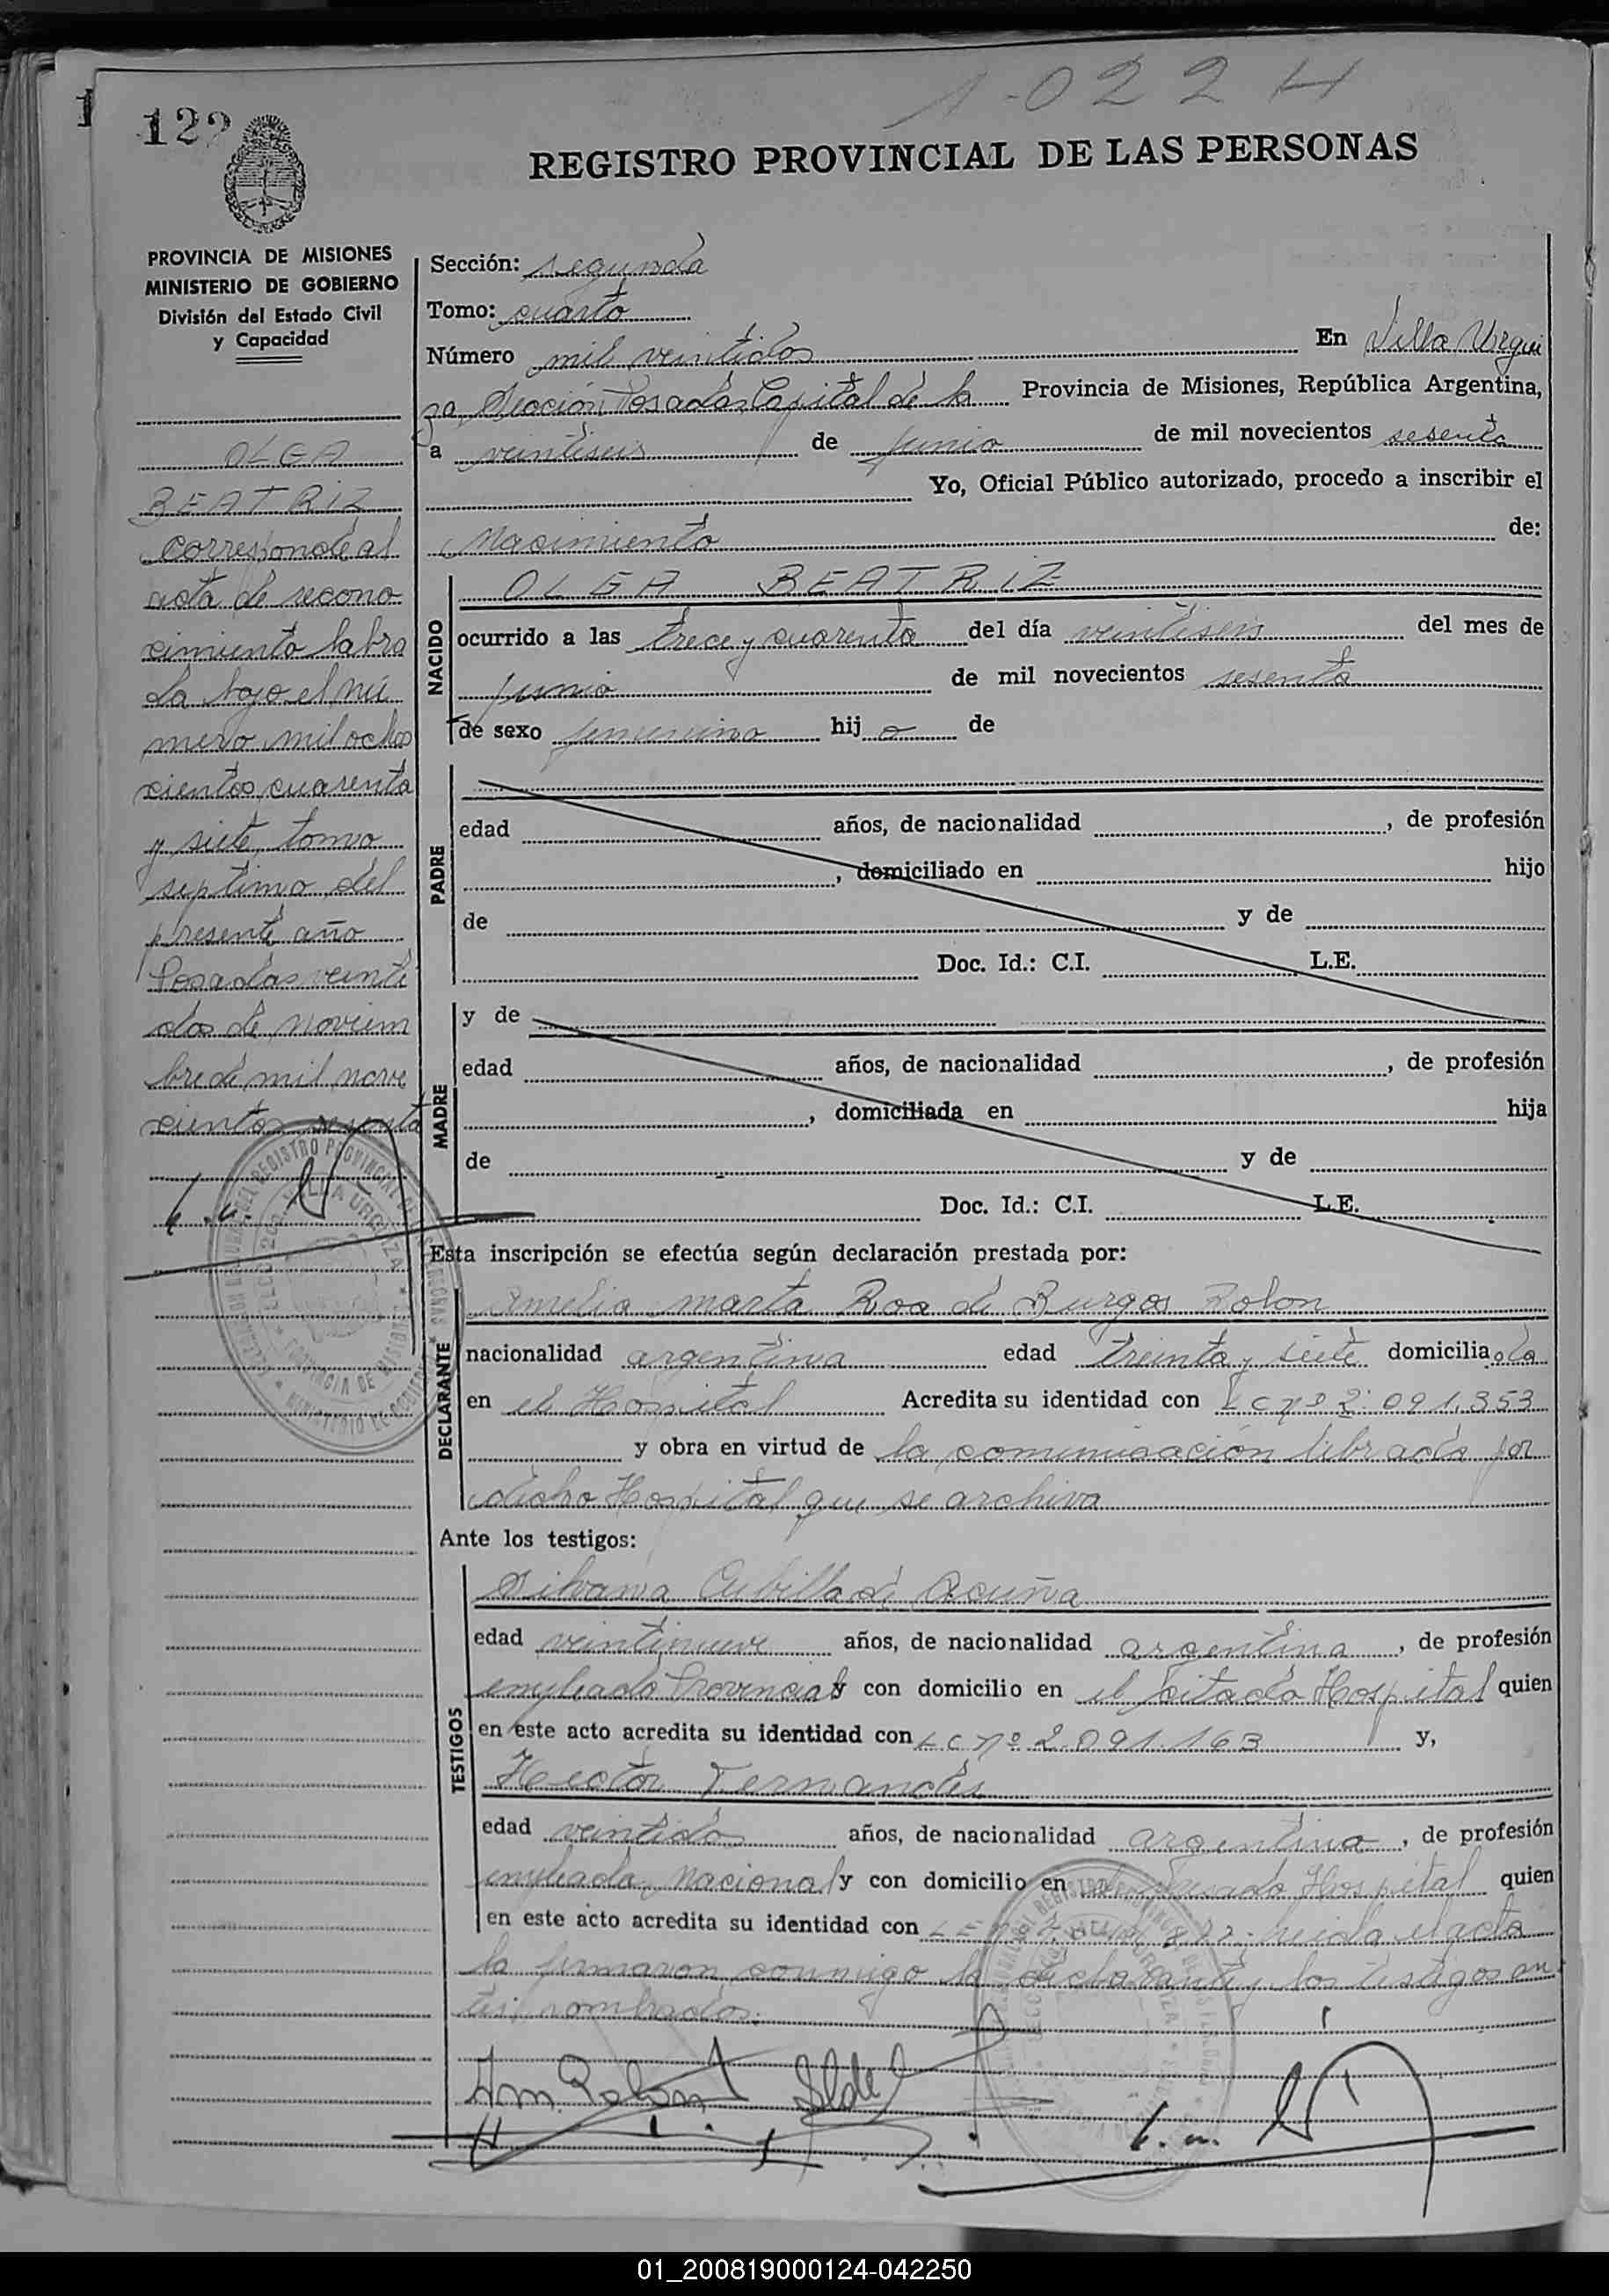 1-022 H
122
REGISTRO PROVINCIAL DE LAS PERSONAS
PROVINCIA DE MISIONES
MINISTERIO DE GOBIERNO
División del Estado Civil
y Capacidad
OLGA
BEATRIZ
Corresponde al
acta de recono
cimiento labra
da bajo el nú
mero mil ocho
cientos cuarenta
y siete, tomo
septimo del
presente año
Posadas veinti
dos de noviem
bre de mil nove
cientos sesenta
Sección: segunda
Tomo: cuarto
Número mil veintidos En Villa Urqui
za Sección Posadas Capital de la Provincia de Misiones, República Argentina,
a veintiseis de junio de mil novecientos sesenta
Yo, Oficial Público autorizado, procedo a inscribir el
Nacimiento de:
NACIDO
OLGA BEATRIZ
ocurrido a las trece y cuarenta del día veintiseis del mes de
junio de mil novecientos sesenta
de sexo femenino hij a de
PADRE
edad años, de nacionalidad , de profesión
, domiciliado en hijo
de y de
Doc. Id.: C.I. L.E.
MADRE
y de
edad años, de nacionalidad , de profesión
, domiciliada en hija
de y de
Doc. Id.: C.I. L.E.
Esta inscripción se efectúa según declaración prestada por:
DECLARANTE
Amelia Marta Roa de Burgos Rolon
nacionalidad argentina edad treinta y siete domicilia da
en el Hospital Acredita su identidad con L C nº 2.091.353
y obra en virtud de la comunicación librada por
dicho Hospital que se archiva
Ante los testigos:
TESTIGOS
Silvana Cubilla de Acuña
edad veintinueve años, de nacionalidad argentina , de profesión
empleada Provincial y con domicilio en el citado Hospital quien
en este acto acredita su identidad con L C nº 2.091.163 y,
Hector Fernandes
edad veintido años, de nacionalidad argentina , de profesión
empleada Nacional y con domicilio en Hospital quien
en este acto acredita su identidad con L E leida el acta
la firmaron conmigo la declarante y los testigos an
tes nombrados.
Am. Rolon
01_200819000124-042250